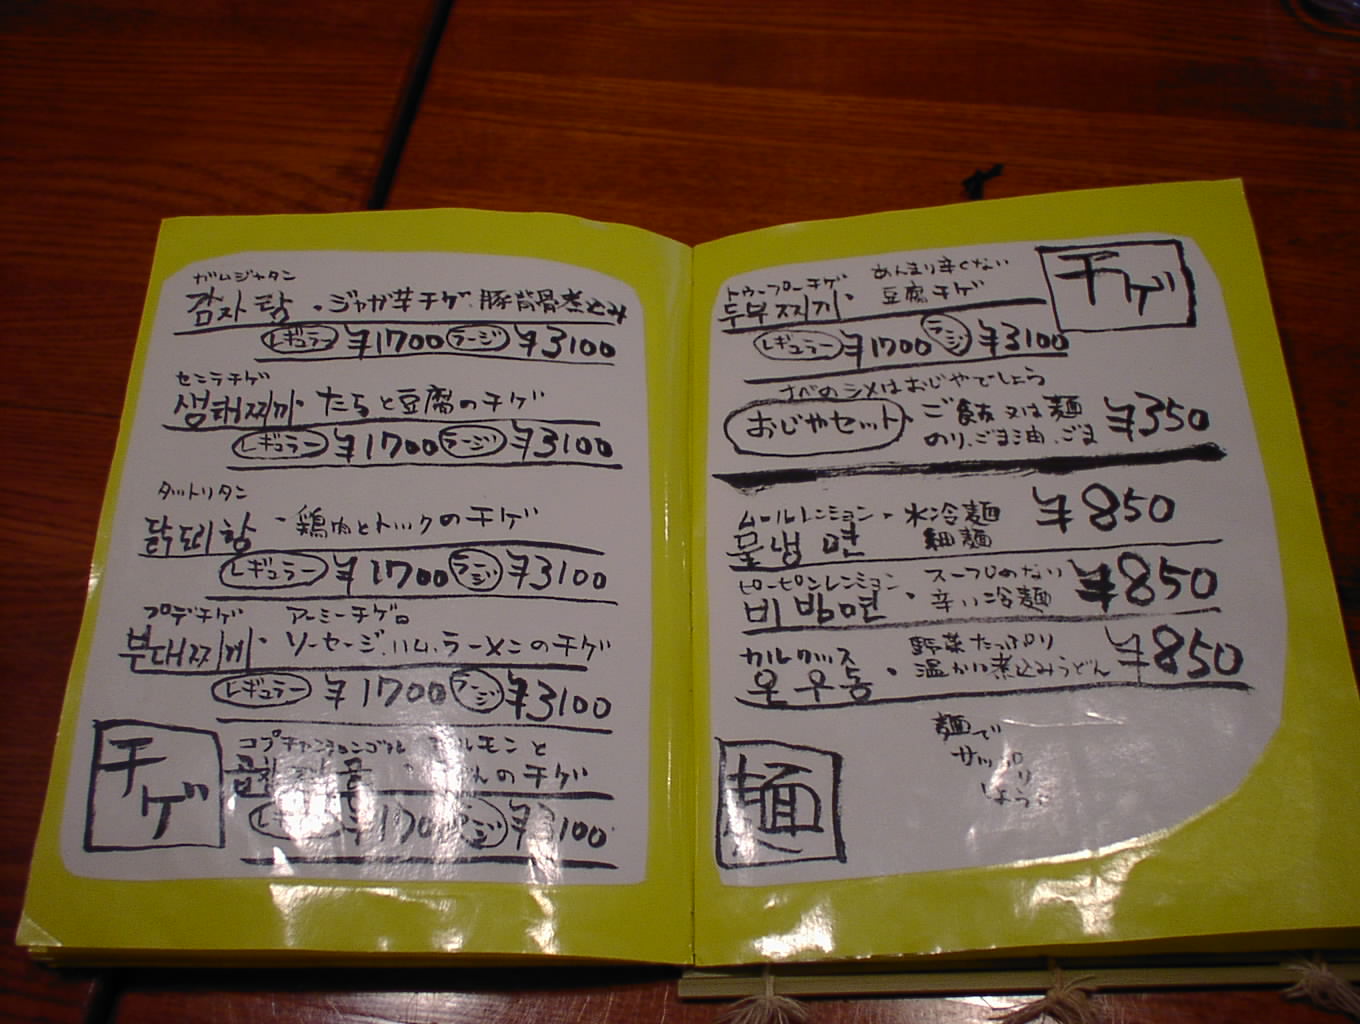 ガムジャタン
감자탕・ジャガ芋チゲ.豚背骨煮込み
レギュラー ¥1700 ラージ ¥3100
センテチゲ
생태찌개・たらと豆腐のチゲ
レギュラー ¥1700 ラージ ¥3100
タットリタン
닭도리탕・鶏肉とトックのチゲ
レギュラー ¥1700 ラージ ¥3100
プデチゲ アーミーチゲ
부대찌개・ソーセージ.ハム.ラーメンのチゲ
レギュラー ¥1700 ラージ ¥3100
チゲ
コプチャンチョンゴル ホルモンと
のチゲ
レギュラー ¥1700 ラージ ¥3100
チゲ
トゥーフーチゲ あんまり辛くない
두부찌개・豆腐チゲ
レギュラー ¥1700 ラージ ¥3100
ナベのシメはおじやでしょう
おじやセット・ご飯又は麺 ¥350
のり.ごま油.ごま
ムールレンミョン・水冷麺 ¥850
물냉면 細麺
ピーピンレンミョン・スープのない ¥850
비빔면 辛い冷麺
カルクッス 野菜たっぷり ¥850
온우동・温かい煮込みうどん
麺
麺で
サッパリ
しょう